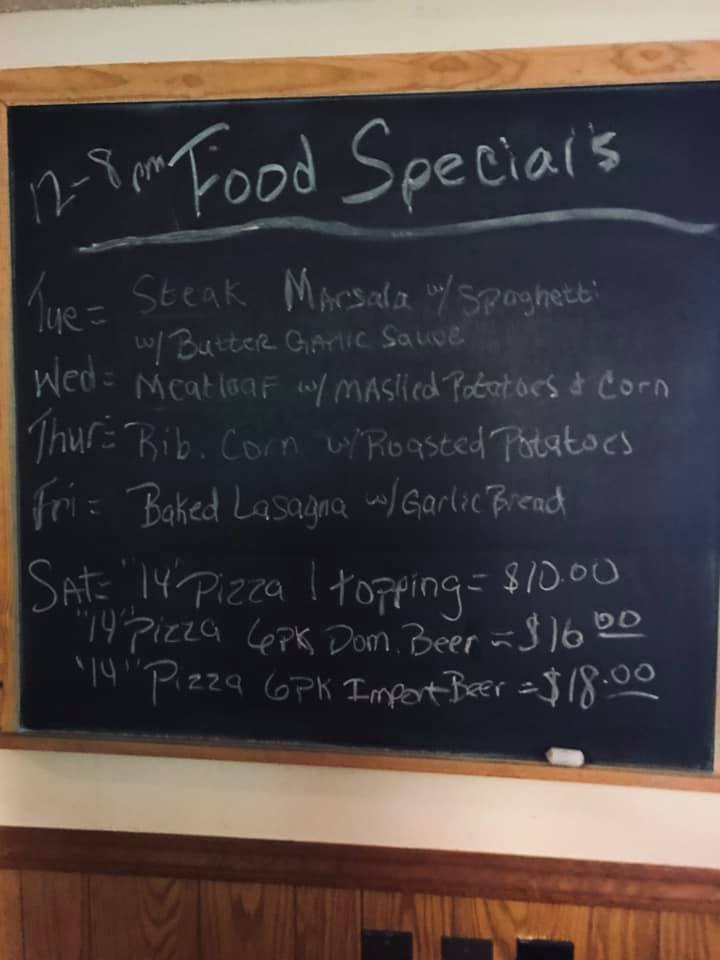 12-8pm Food Special's
Tue = Steak Marsala w/ Spaghetti
w/ Butter Garlic Sauce
Wed = Meatloaf w/ Mashed Potatoes & Corn
Thur = Rib. Corn w/ Roasted Potatoes
Fri = Baked Lasagna w/ Garlic Bread
SAT = "14" Pizza 1 topping = $10.00
"14" Pizza 6PK Dom. Beer = $16.00
"14" Pizza 6PK Import Beer = $18.00